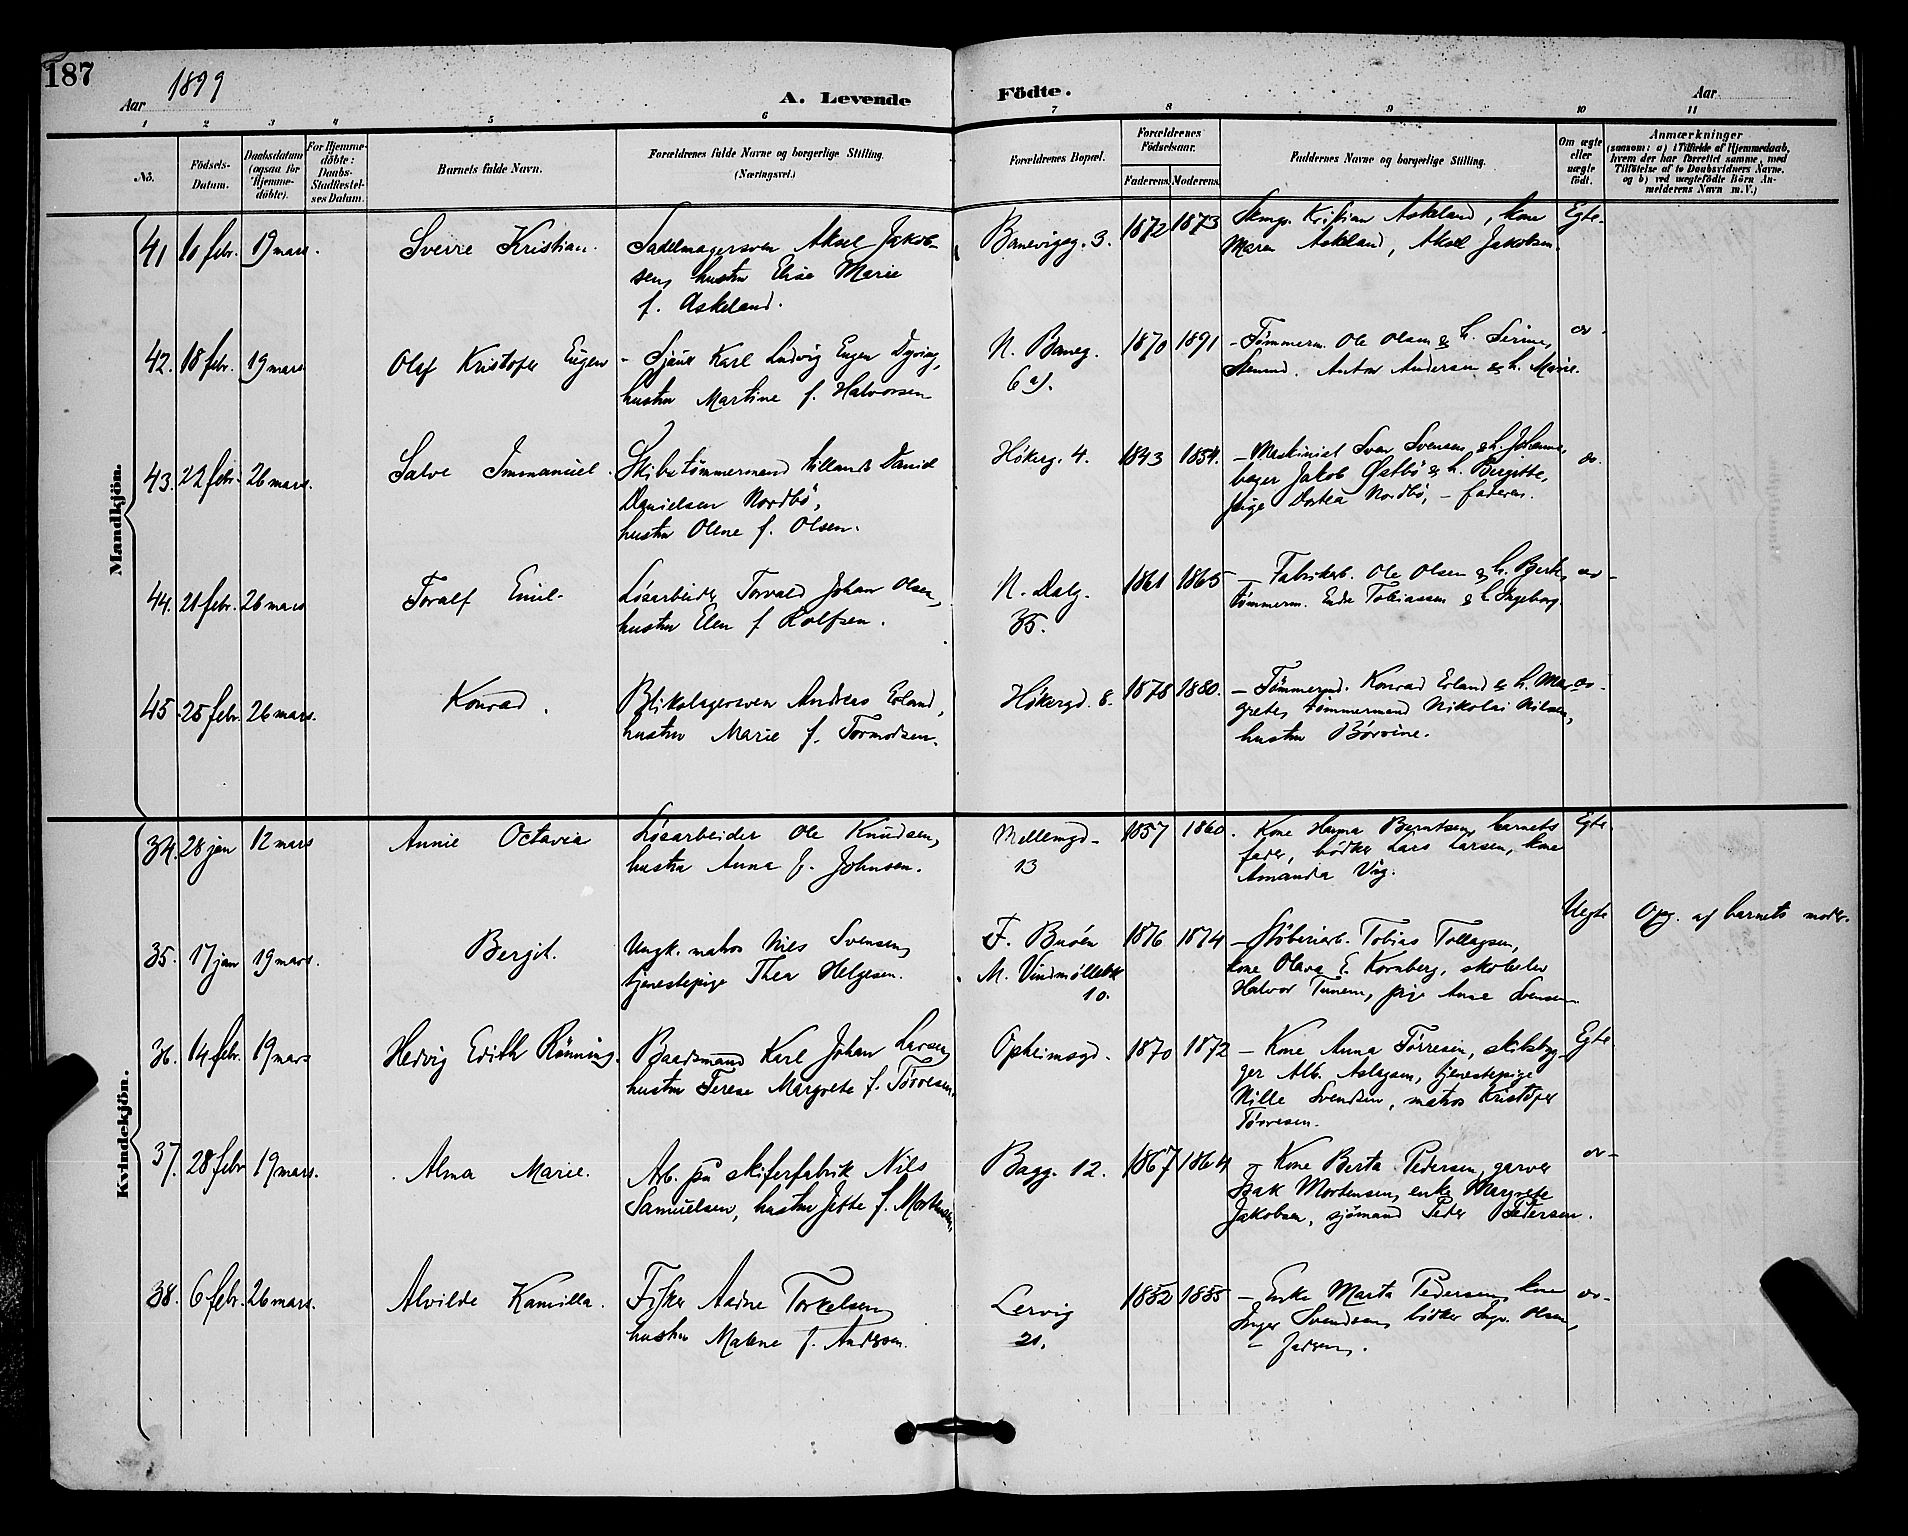 187
Aar 1899
A. Levende Födte.
Aar
1 2 3 4 5 6 7 8 9 10 11
No.
Födsels-Datum.
Daabsdatum (ogsaa for Hjemme-döbte).
For Hjemme-döbte: Daabs-Stadfæstel-ses Datum.
Barnets fulde Navn.
Forældrenes fulde Navne og borgerlige Stilling.
(Næringsvei.)
Forældrenes Bopæl.
Forældrenes Födselsaar.
Faderens. Moderens.
Faddernes Navne og borgerlige Stilling.
Om ægte eller uægte født.
Anmærkninger
(saasom: a) i Tilfælde af Hjemmedaab, hvem der har forrettet samme, med Tilføielse af to Daabsvidners Navne, og b) ved uægtefödte Börn An-melderens Navn m. V.)
Mandkjön.
41. 10 febr. 19 mars.
Sverre Kristian.
Sadelmagersven Aksel Jakob-
sen, hustru Elise Marie
f. Askeland.
Banevigsg. 3.
1872 1873
Kristian Askeland, kone
Maren Askeland, Aksel Jakobsen.
Egte.
42. 18 febr. 19 mars
Olaf Kristofer Eugen
Karl Ludvig Eugen Dyring,
hustru Martine f. Halvorsen
N. Baneg.
6 a).
1870 1891
- Tömmerm. Ole Olsen & h. Serine,
Anton Andersen & h. Marie.
43. 22 febr. 26 mars.
Salve Immanuel.
Skibstömmermand Daniel
Danielsen Nordbö,
hustru Olene f. Olsen.
Høkerg. 4.
1843 1854.
- Maskinist Sven Svensen, & h. Johanne,
bager Jakob Østbö & h. Bergitte,
pige Dortea Nordbö, - faderen.
44. 21 febr. 26 mars
Toralf Emil.
Løsarbeider Torvald Johan Olsen,
hustru Elen f. Rolfsen.
N. Dalg.
35.
1861 1865
- Fabrikarb. Ole Olsen & h. Berte,
tømmerm. Endre Tobiassen & h. Ingeborg.
45. 25 febr. 26 mars.
Konrad.
Blikslagersven Andreas Erland,
hustru Marie f. Tormodsen.
Høkergd. 8.
1878 1880.
- Tømmermd. Konrad Erland & h. Mar-
grete, tømmermand Nikolai Nilsen,
hustru Børvine.
Kvindekjön.
34. 28 jan 12 mars
Annie Octavia
Løsarbeider Ole Knudsen,
hustru Anna f. Johnsen.
Mellemgd-
13
1857 1860.
Kone Hanna Berntsen, barnets
fader, bødker Lars Larsen, kone
Amanda Vig.
Egte.
35. 17 jan 19 mars.
Bergit.
Ungk. matros Nils Svensen,
tjenestepige Thea Helgesen.
F. Buøen
M. Vindmøllebk
10.
1876 1874
- Støberiarb. Tobias Tollagsen,
kone Olava E. Kornberg, skoleelev
Halvor Tunem, pige Anne Svensen
Uegte
Opg. af barnets moder.
36. 14 febr. 19 mars
Hedvig Edith Rönning.
Baadsmand Karl Johan Larsen,
hustru Terese Margrete f. Tørresen.
Opheimsgd.
1870 1872
- Kone Anna Tørresen, skibsbyg-
ger Alb. Aslagsen, tjenestepige
Nille Svendsen, matros Kristofer
Tørresen.
Egte
37. 28 febr 19 mars.
Alma Marie.
Arb. på skiferfabrik Nils
Samuelsen, hustru Jette f. Mortensen,
Bagg. 12.
1867 1864
- Kone Berta Pedersen, garver
Isak Mortensen, enke Margrete
Jakobsen, sjömand Peder Pedersen.
38. 6 febr. 26 mars.
Alvilde Kamilla.
Fisker Aadne Torkelsen,
hustru Malene f. Andersen.
Lervig
21.
1852 1855
- Enke Marta Pedersen, kone
Inger Svendsen, bødker Ingv. Olsen,
- faderen.